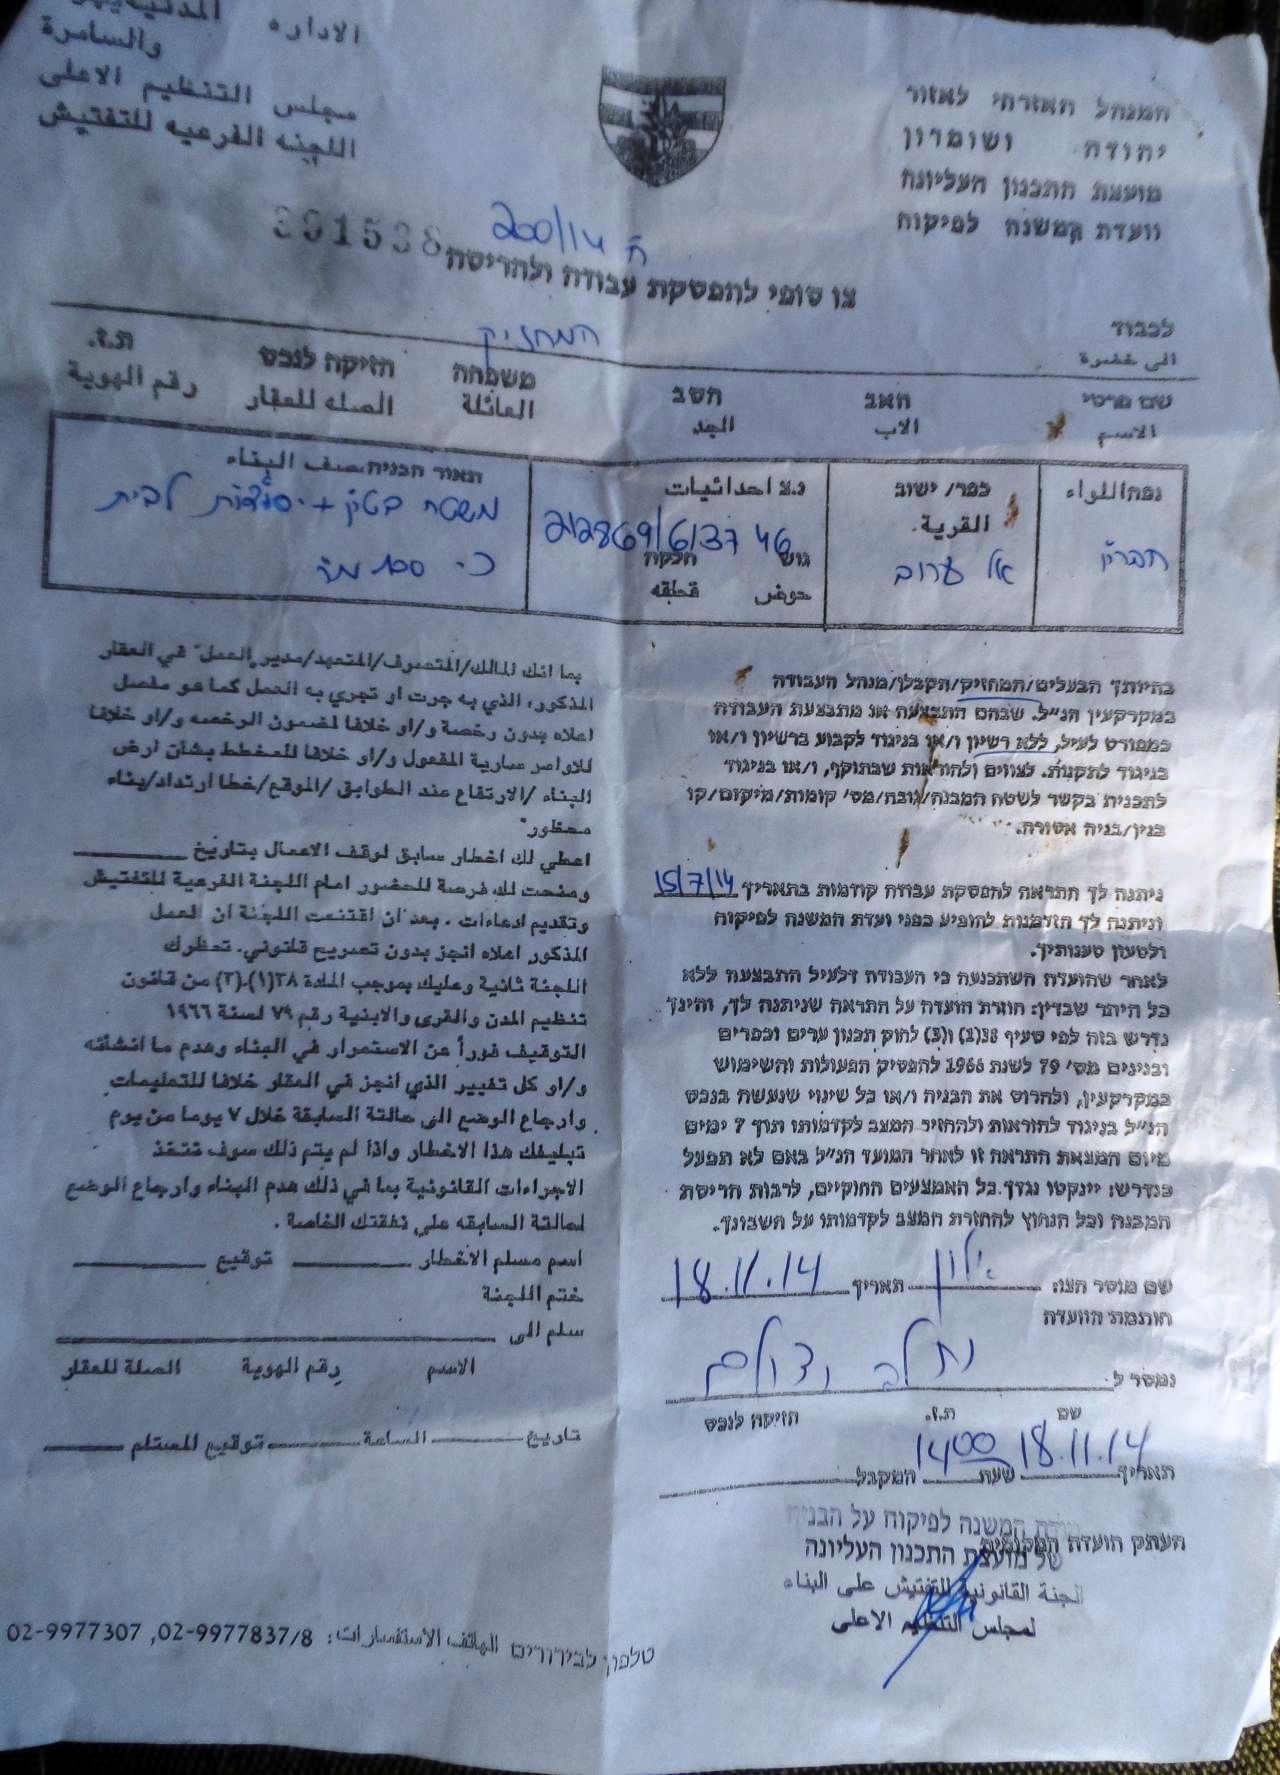 המנהל האזרחי לאזור
יהודה ושומרון
מועצת התכנון העליונה
וועדת המשנה לפיקוח
الاداره المدنيه
والسامرة
مجلس التنظيم الاعلى
اللجنه الفرعيه للتفتيش
391538 ה 200/14
צו סופי להפסקת עבודה ולהריסה
לכבוד
الى حضرة
המחזיק
שם פרטי האב הסב משפחה חזיקה לנכס ת.ז.
الاسم الاب الجد العائلة الصله للعقار رقم الهوية
נפה اللواء
חברון
כפר/ ישוב
القرية.
אל ערוב
נ.צ احداثيات
212869/613746
גוש חלקה
حوض قطعه
תאור הבניה صف البناء
משטח בטון + יסודות לבית
כ- 200 מ"ר
בהיותך הבעלים/המחזיק/הקבלן/מנהל העבודה
במקרקעין הנ"ל. שבהם התבצעה או מתבצעת העבודה
כמפורט לעיל, ללא רשיון ו/או בניגוד לקבוע ברשיון ו/או
בניגוד לתקנות. לצווים ולהוראות שבתוקף, ו/או בניגוד
לתכנית בקשר לשטח המבנה/גובה/מס' קומות/מיקום/קו
בנין/בניה אסורה.
ניתנה לך התראה להפסקת עבודה קודמות בתאריך 15/7/14
וניתנה לך הזדמנות להופיע בפני ועדת המשנה לפיקוח
ולטעון טענותיך.
לאחר שהועדה השתכנעה כי העבודה דלעיל התבצעה ללא
כל היתר שבדין: חוזרת הועדה על התראה שניתנה לך, והינך
נדרש בזה לפי סעיף 38(1) ו(3) לחוק תכנון ערים וכפרים
ובנינים מס' 79 לשנת 1966 להפסיק הפעולות והשימוש
במקרקעין, ולהרוס את הבניה ו/או כל שינוי שנעשה בנכס
הנ"ל בניגוד להוראות ולהחזיר המצב לקדמותו תוך 7 ימים
מיום המצאת התראה זו לאחר המועד הנ"ל באם לא תפעל
כנדרש: יינקטו נגדך. כל האמצעים החוקיים, לרבות הריסת
המבנה וכל הנחוץ להחזרת המצב לקדמותו על חשבונך.
שם מוסר הצו: תאריך 18.11.14
חותמת הוועדה
נמסר ל
שם ת.ז. חזיקה לנכס
תאריך 18.11.14 שעה 1400 המקבל
بما انك المالك/المتصرف/المتعهد/مدير العمل" في العقار
المذكور، الذي به جرت او تجري به العمل كما هو مفصل
اعلاه بدون رخصة و/او خلافا لمضمون الرخصه و/او خلافا
للاوامر سارية المفعول و/او خلافا للمخطط بشان ارض
البناء /الارتفاع عند الطوابق /الموقع/خطا ارتداد/بناء
محظور"
اعطي لك اخطار سابق لوقف الاعمال بتاريخ
ومنحت لك فرصة للحضور امام اللجنة الفرعية للتفتيش
وتقديم ادعاءات . بعد ان اقتنعت اللجنة ان العمل
المذكور اعلاه انجز بدون تصريح قانوني. تحظرك
اللجنة ثانية وعليك بموجب المادة ٣٨(١).(٣) من قانون
تنظيم المدن والقرى والابنية رقم ٧٩ لسنة ١٩٦٦
التوقيف فوراً عن الاستمرار في البناء وهدم ما انشأته
و/او كل تغيير الذي انجز في العقار خلافا للتعليمات
وارجاع الوضع الى حالتة السابقة خلال ٧ يوما من يوم
تبليغك هذا الاخطار واذا لم يتم ذلك سوف تتخذ
الاجراءات القانونية بما في ذلك هدم البناء وارجاع الوضع
لحالتة السابقه على نفقتك الخاصة .
اسم مسلم الاخطار توقيع
ختم اللجنة
سلم الى
الاسم رقم الهوية الصلة للعقار
تاريخ الساعة توقيع المستلم
העתק הועדה המקומית
ועדת המשנה לפיקוח על הבניה
של מועצת התכנון העליונה
الجنة القانونية للتفتيش على البناء
لمجلس التنظيم الاعلى
טלפון לבירורים الهاتف الاستفسارات: 02-9977837/8, 02-9977307